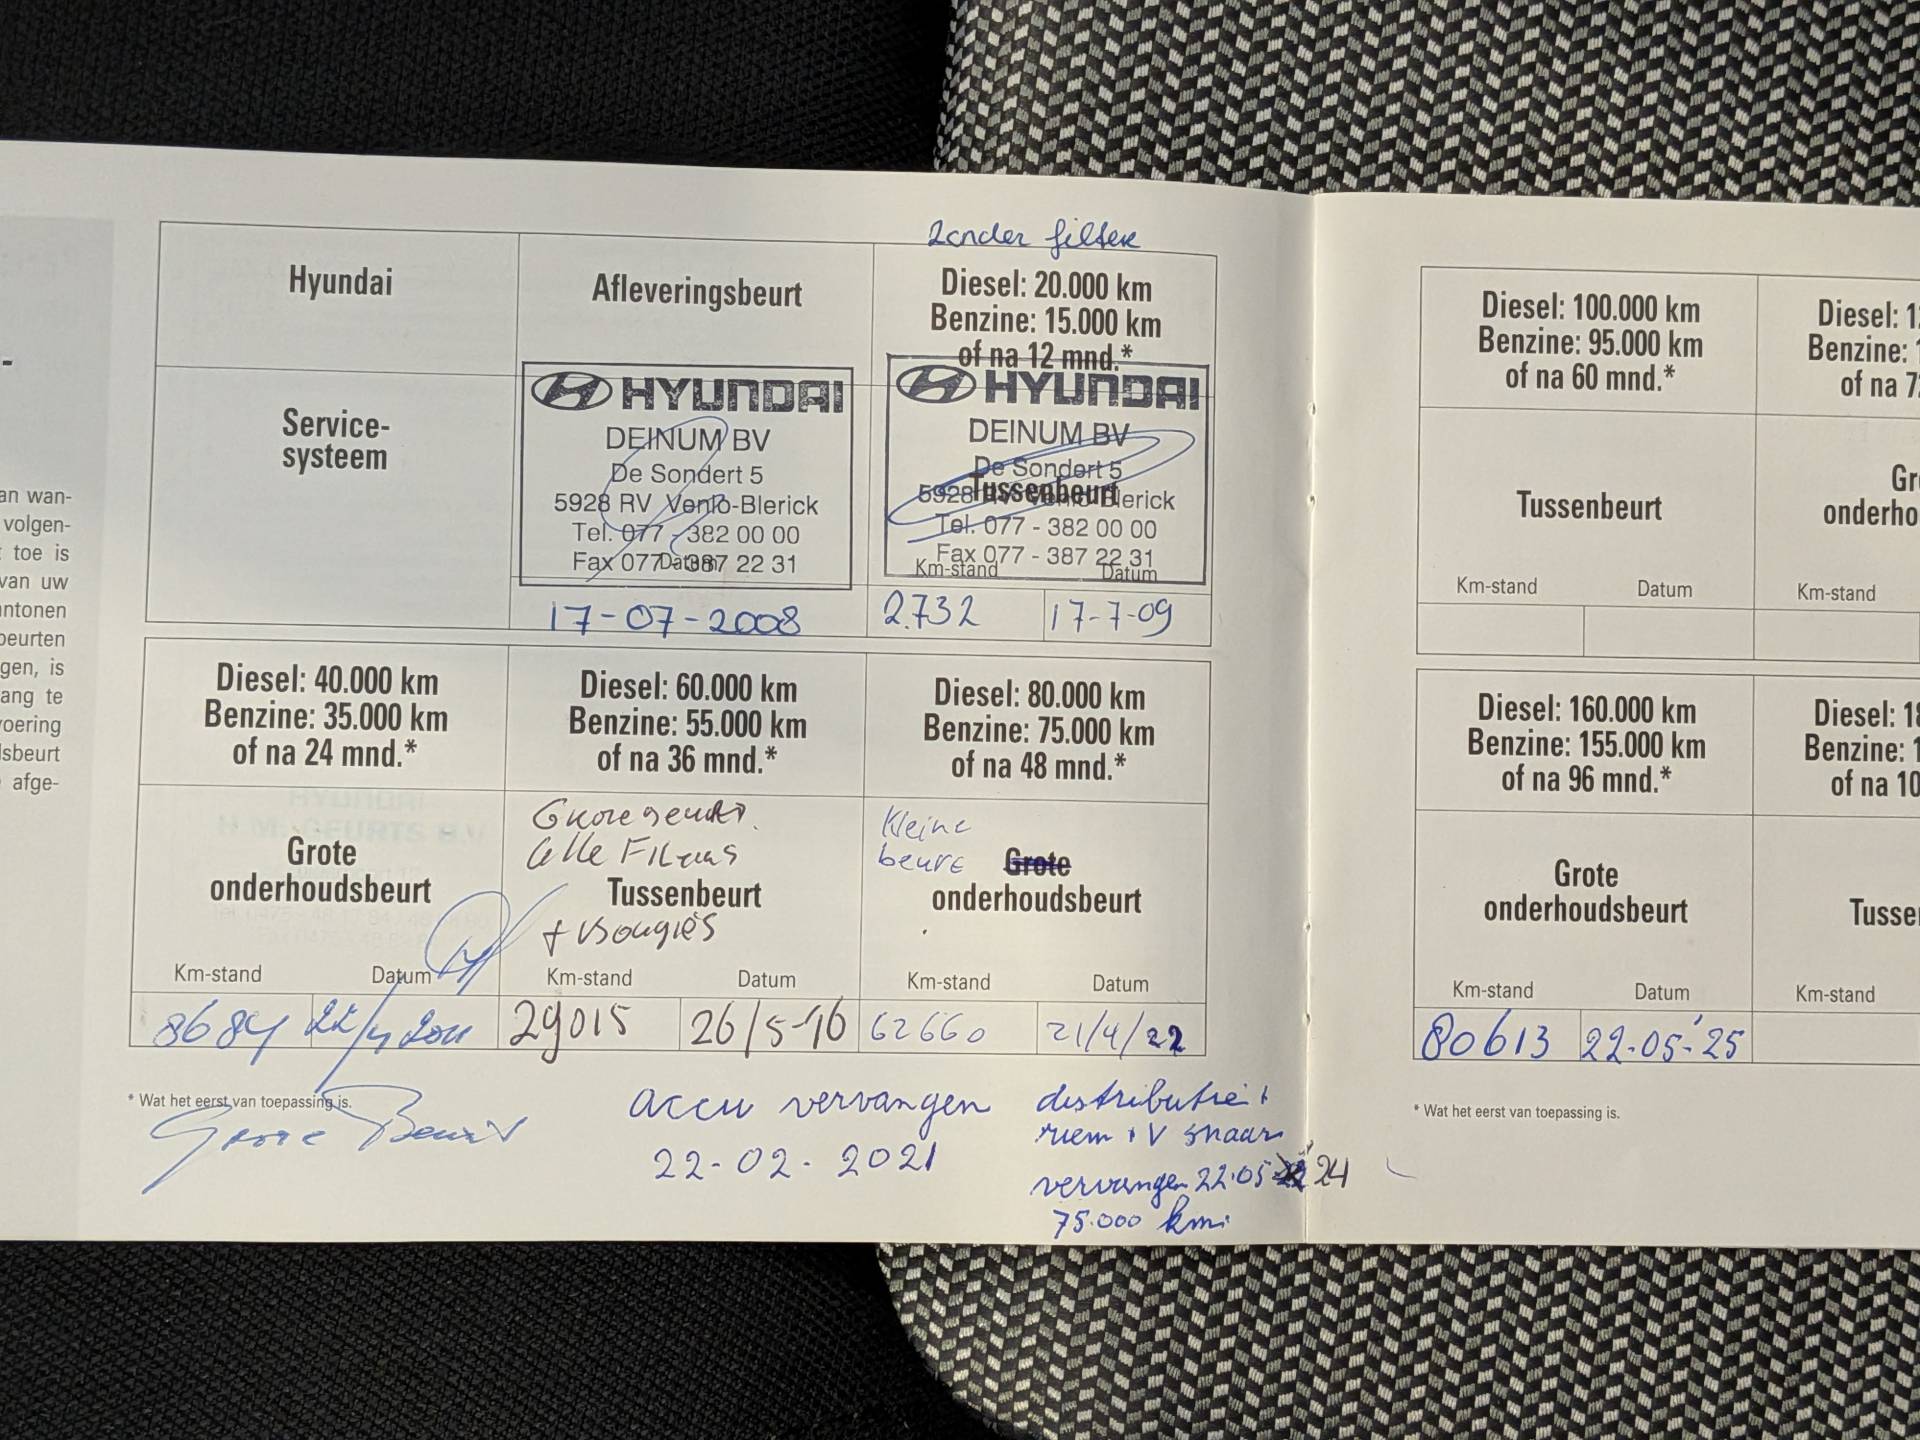 -
an wan-
volgen-
toe is
van uw
antonen
beurten
gen, is
ang te
voering
sbeurt
afge-
Hyundai
Service-
systeem
Afleveringsbeurt
HYUNDAI
DEINUM BV
De Sondert 5
5928 RV Venlo-Blerick
Tel. 077 - 382 00 00
Fax 077 - 387 22 31
Datum
17-07-2008
zonder filters
Diesel: 20.000 km
Benzine: 15.000 km
of na 12 mnd.*
HYUNDAI
DEINUM BV
De Sondert 5
5928 RV Venlo-Blerick
Tussenbeurt
Tel. 077 - 382 00 00
Fax 077 - 387 22 31
Km-stand Datum
2.732 17-7-09
Diesel: 40.000 km
Benzine: 35.000 km
of na 24 mnd.*
Grote
onderhoudsbeurt
Km-stand Datum
8684 22/4 2011
Diesel: 60.000 km
Benzine: 55.000 km
of na 36 mnd.*
alle
Tussenbeurt
+ Bougiës
Km-stand Datum
29015 26/5-16
Diesel: 80.000 km
Benzine: 75.000 km
of na 48 mnd.*
Kleine
beurt Grote
onderhoudsbeurt
Km-stand Datum
62660 21/4/22
* Wat het eerst van toepassing is.
Grote Beurt
accu vervangen
22-02-2021
distributie +
riem + V snaar
vervangen 22.05 24
75.000 km.
Diesel: 100.000 km
Benzine: 95.000 km
of na 60 mnd.*
Tussenbeurt
Km-stand Datum
Diesel: 1
Benzine: 1
of na 7
Gr
onderho
Km-stand
Diesel: 160.000 km
Benzine: 155.000 km
of na 96 mnd.*
Grote
onderhoudsbeurt
Km-stand Datum
80613 22-05-'25
Diesel: 18
Benzine: 1
of na 10
Tusse
Km-stand
* Wat het eerst van toepassing is.